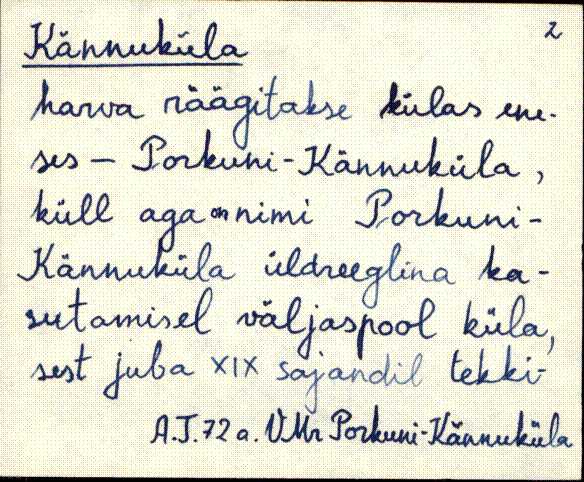 2
Kännuküla
harva räägitakse külas ene-
ses - Porkuni-Kännuküla,
küll aga on nimi Porkuni-
Kännuküla üldreeglina ka-
sutamisel väljaspool küla,
sest juba XIX sajandil tekki-
A.T. 72 a. VMr Porkuni-Kännuküla